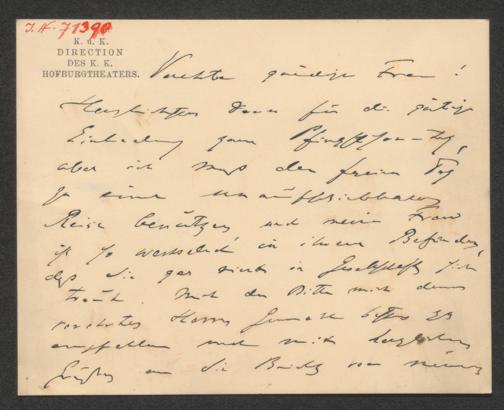 I.N. 71390
K. u. K.
DIRECTION
DES K. K.
HOFBURGTHEATERS.
Verehrte gnädige Frau!
Herzlichsten Dank für die gütige
Einladung zum Pfingstsonntag,
aber ich muß den freien Tag
zu einer unaufschiebbaren
Reise benützen und meine Frau
ist so wechselnd in ihrem Befinden,
daß sie gar nicht in Gesellschaft sich
traut. Mit der Bitte mich dem
verehrten Herrn Gemahl bestens zu
empfehlen und mit herzlichen
Grüßen an die